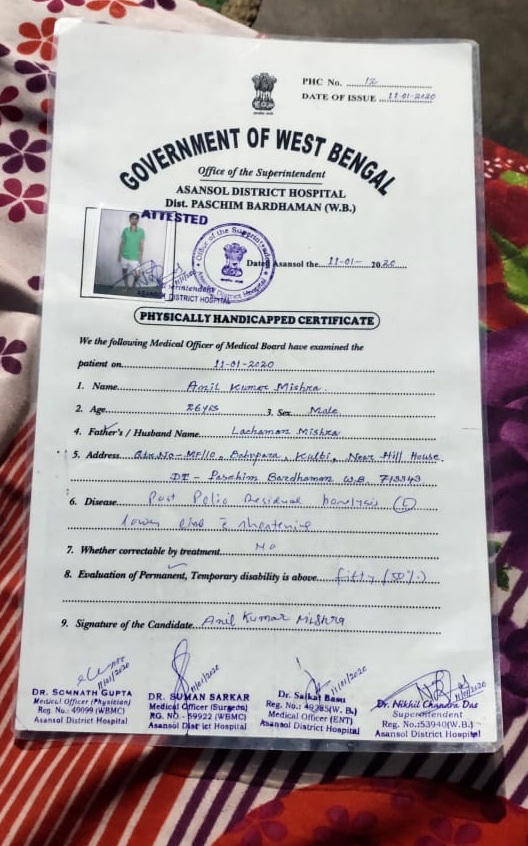 PHC No. 12
DATE OF ISSUE 11-01-2020
GOVERNMENT OF WEST BENGAL
Office of the Superintendent
ASANSOL DISTRICT HOSPITAL
Dist. PASCHIM BARDHAMAN (W.B.)
ATTESTED
Office of the Superintendent
Asansol District Hospital
Superintendent
ASANSOL DISTRICT HOSPITAL
Dated Asansol the 11-01- 2020
PHYSICALLY HANDICAPPED CERTIFICATE
We the following Medical Officer of Medical Board have examined the
patient on 11-01-2020
1. Name Anil Kumar Mishra
2. Age 26 yrs 3. Sex Male
4. Father's / Husband Name Lachaman Mishra
5. Address Qtr. No-MF/10, Kulti, Near Hill House.
Paschim Bardhaman W.B. 713343
6. Disease Post Polio Residual Paralysis (L)
lower
7. Whether correctable by treatment No
8. Evaluation of Permanent, Temporary disability is above fifty (50%)
9. Signature of the Candidate Anil Kumar Mishra
11/01/2020
11/01/2020
11/01/2020
11/01/2020
DR. SOMNATH GUPTA
Medical Officer (Physician)
Reg. No.: 49099 (WBMC)
Asansol District Hospital
DR. SUMAN SARKAR
Medical Officer (Surgeon)
RG. NO - 59922 (WBMC)
Asansol District Hospital
Dr. Saikat Basu
Reg. No.: 49285(W. B.)
Medical Officer (ENT)
Asansol District Hospital
Dr. Nikhil Chandra Das
Superintendent
Reg. No.:53940(W.B.)
Asansol District Hospital